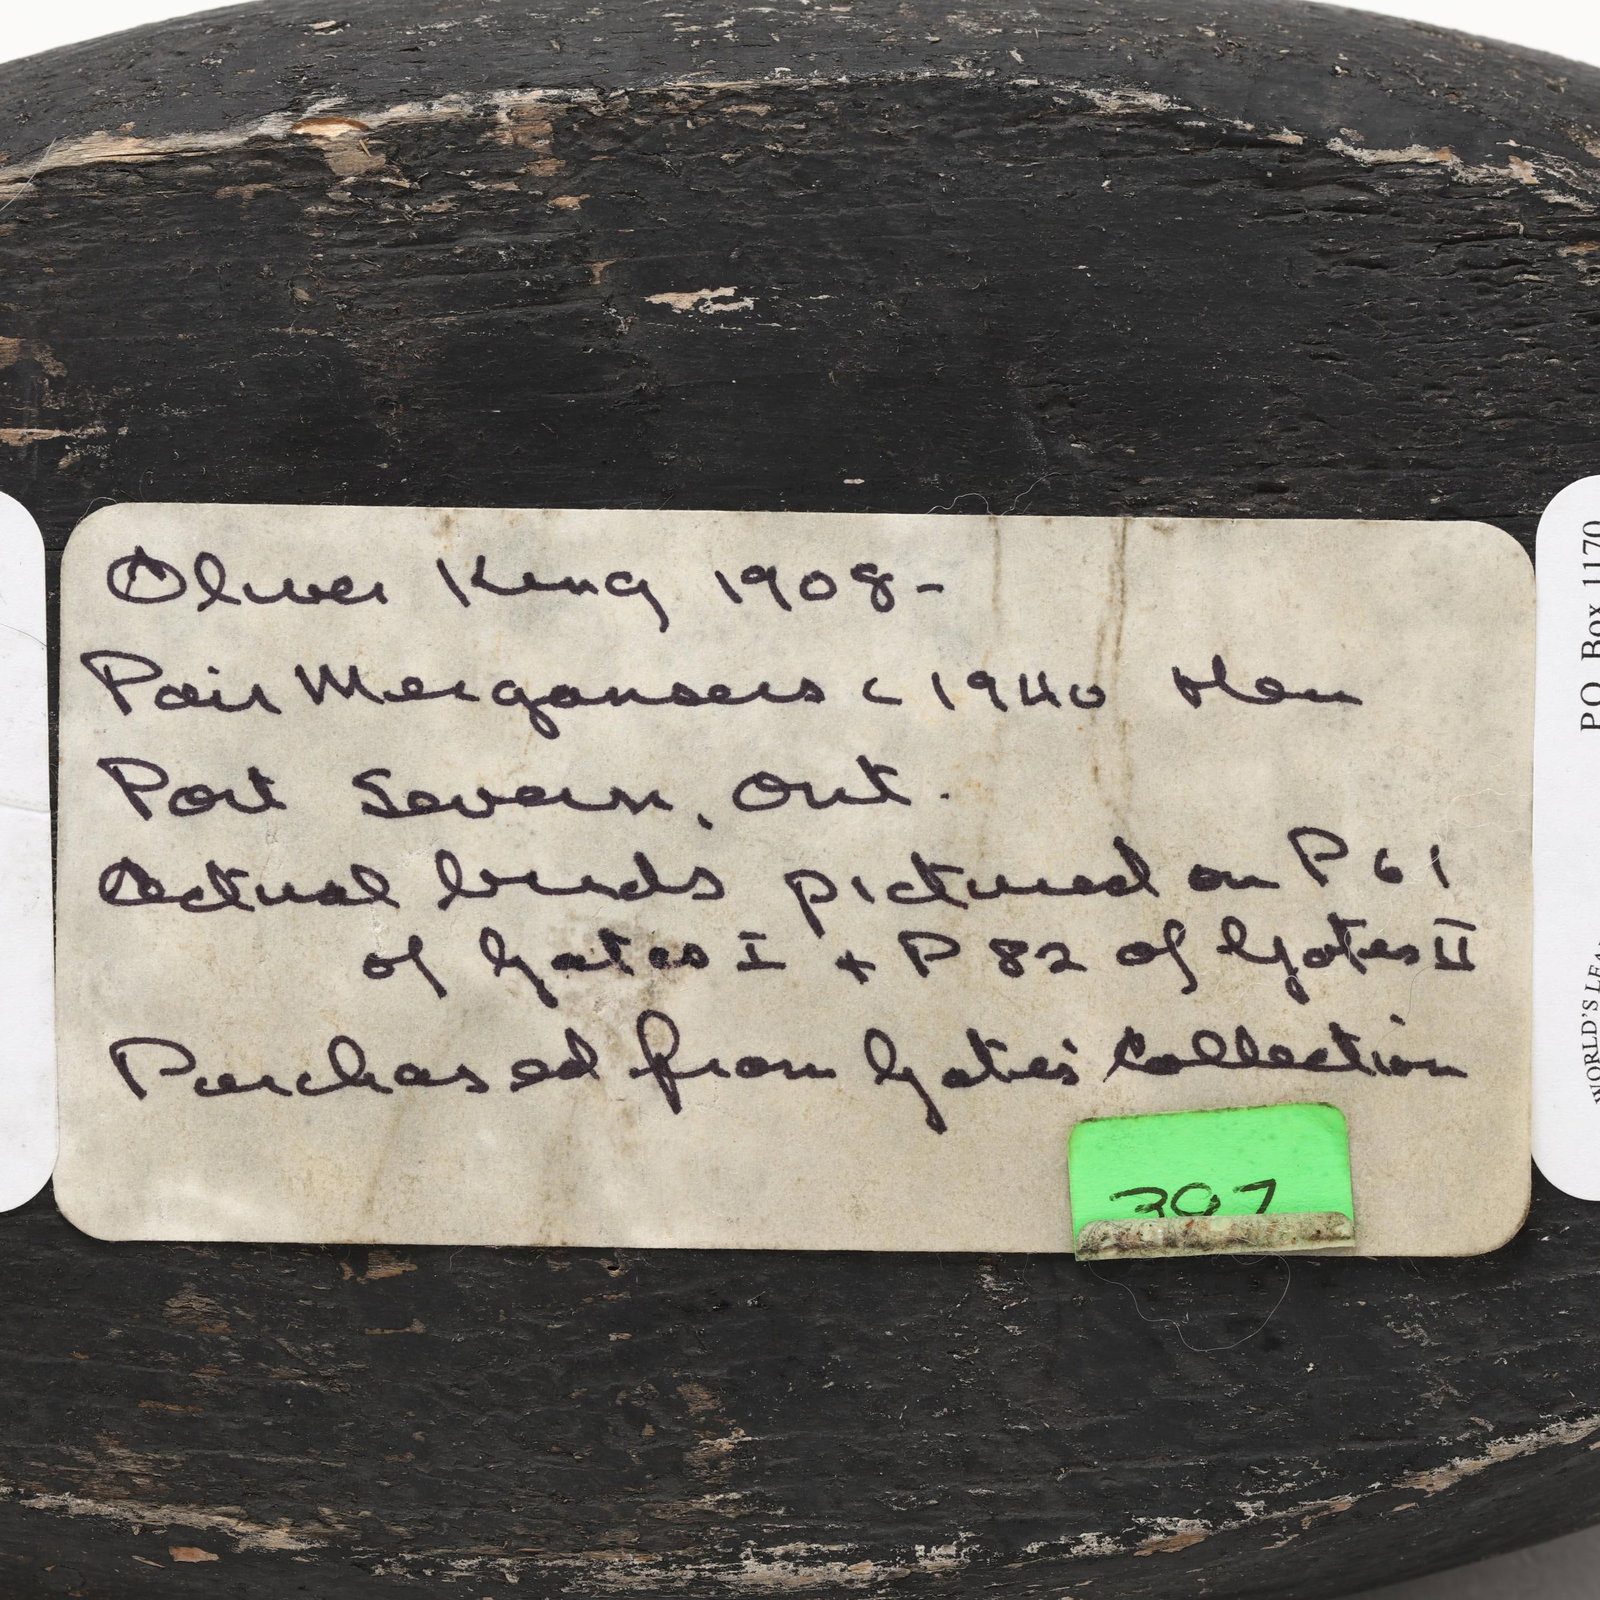 Oliver King 1908-
Pair Mergansers c 1940 Hen
Port Severn, Ont.
Actual birds pictured on P 61
of Gates I + P 82 of Gates II
Purchased from Gates' Collection
397
PO Box 1170
WORLD'S